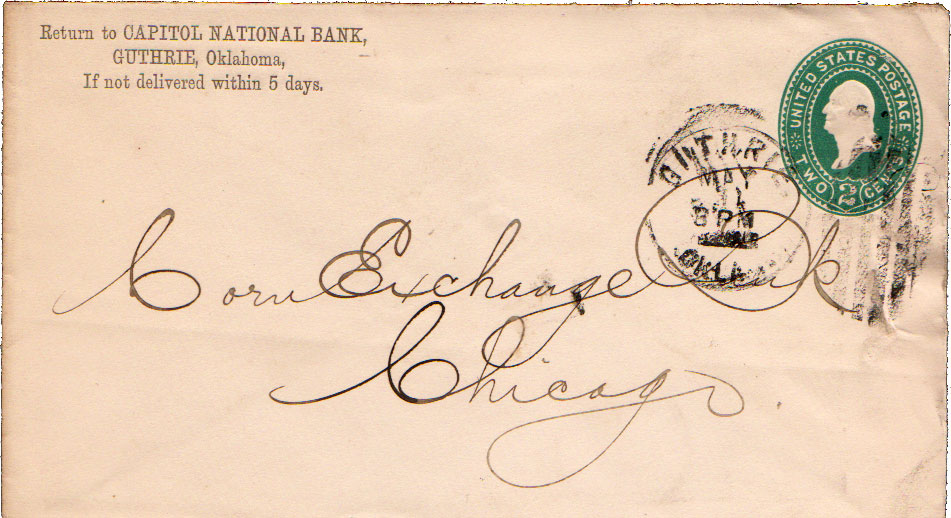 Return to CAPITOL NATIONAL BANK,
GUTHRIE, Oklahoma,
If not delivered within 5 days.
UNITED STATES POSTAGE
TWO 2 CENTS
GUTHRIE
MAY
PM
OKLA
Corn Exchange Bk
Chicago.